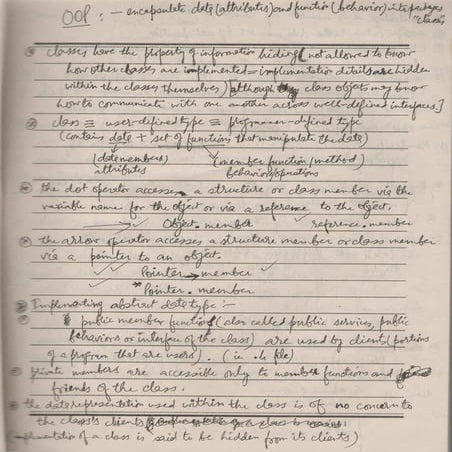 OOP : — encapsulate data (attributes) and function (behavior) into packages
"classes"
classes have the property of information hiding (not allowed to know
how other classes are implemented = implementation details are hidden
within the classes themselves) [although class objects may know
how to communicate with one another across well-defined interfaces]
class ≡ user-defined type ≡ programmer-defined type
(contains data + set of functions that manipulate the data)
(data members) (member function/method)
attributes behaviors/operations
the dot operator accesses a structure or class member via the
variable name for the object or via a reference to the object.
Object.member reference.member
the arrow operator accesses a structure member or class member
via a pointer to an object.
Pointer → member
*Pointer.member
Implementing abstract data type :—
public member functions (also called public services, public
behaviors or interface of the class) are used by clients (portions
of a program that are users). (i.e .h file)
private members are accessible only to member functions and
friends of the class.
the data representation used within the class is of no concern to
the class's clients
mplementation of a class is said to be hidden from its clients)